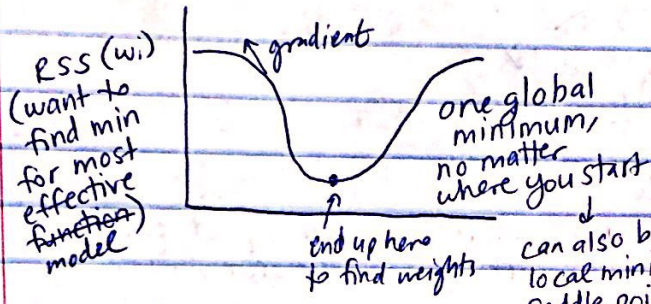 RSS (wi)
(want to
find min
for most
effective
function)
model
gradient
one global
minimum,
no matter
where you start
end up here
to find weights
can also b
local mini
saddle poi